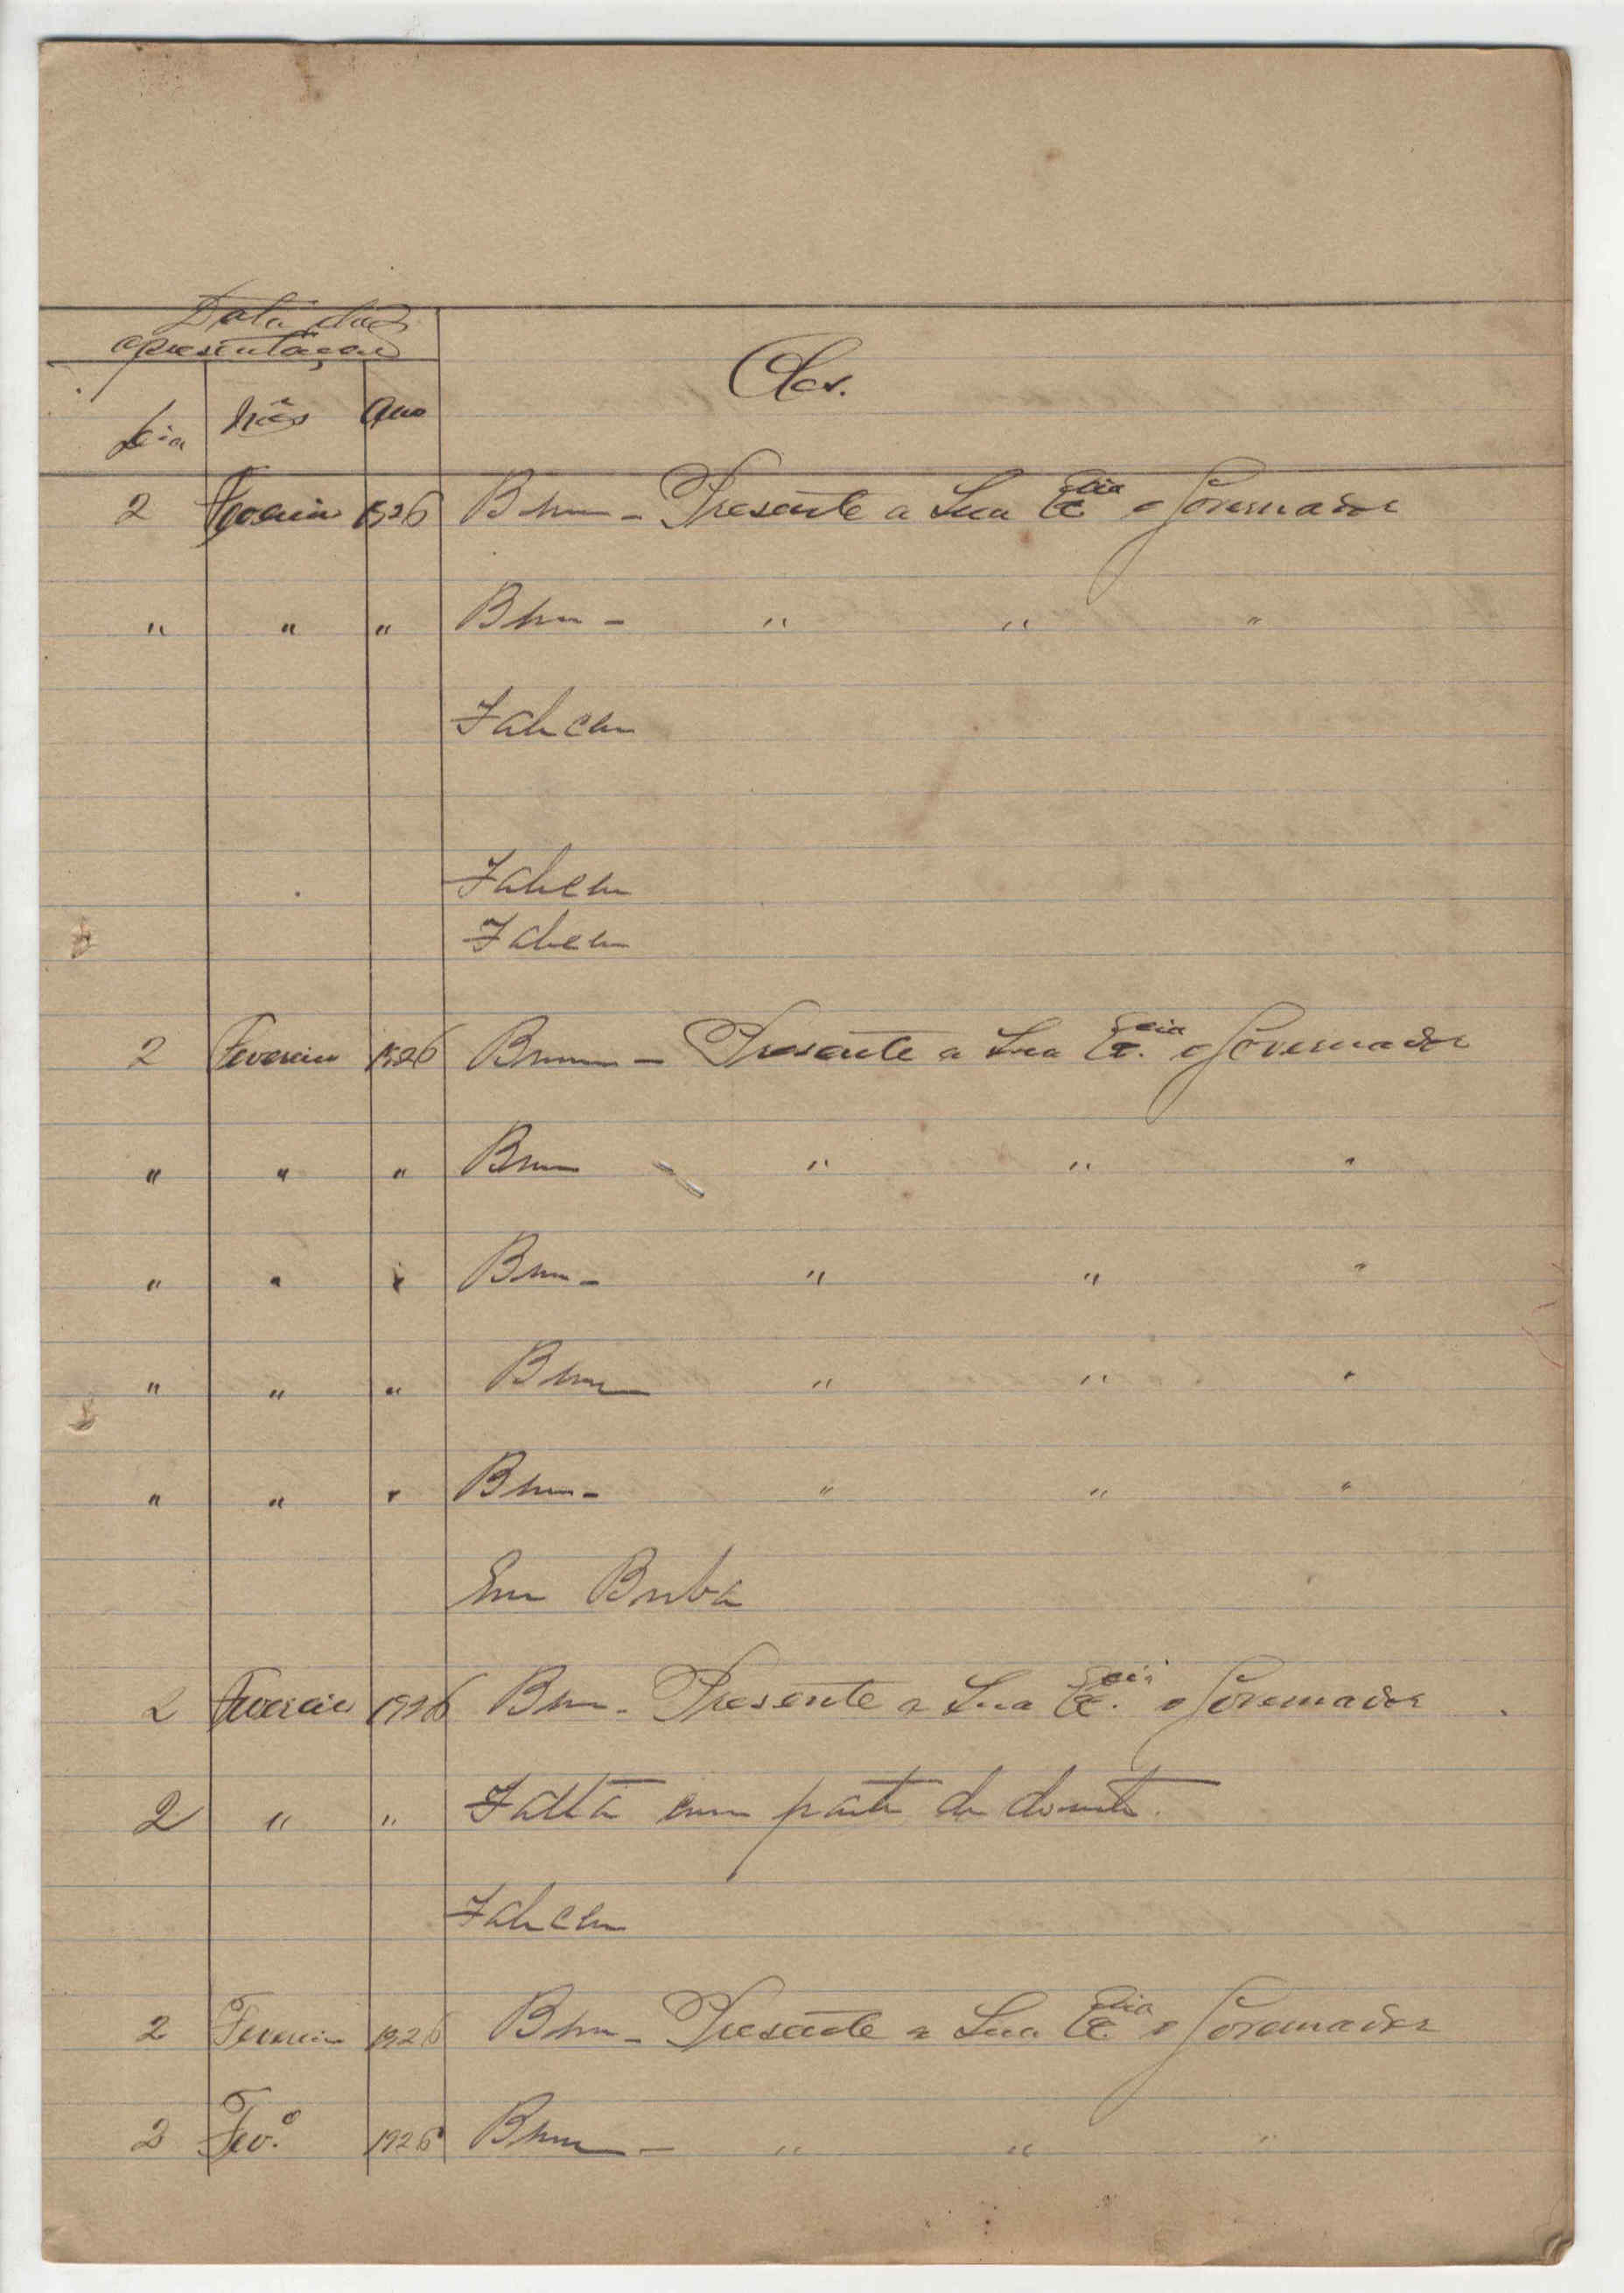 Data das
apresentações
Obs.
Dia Mês Ano
2 Fevereiro 1926 Bom - Presente a Sua Excia o Governador
" " " Bom - " " "
Faleceu
Faleceu
Faleceu
2 Fevereiro 1926 Bom - Presente a Sua Excia. o Governador
" " " Bom " " "
" " " Bom - " " "
" " " Bom " " "
" " " Bom - " " "
Em Buba
2 Fevereiro 1926 Bom - Presente a Sua Excia. o Governador
2 " " Falta com parte de doente.
Faleceu
2 Fevereiro 1926 Bom - Presente a Sua Excia o Governador
2 Fev.º 1926 Bom - " " "